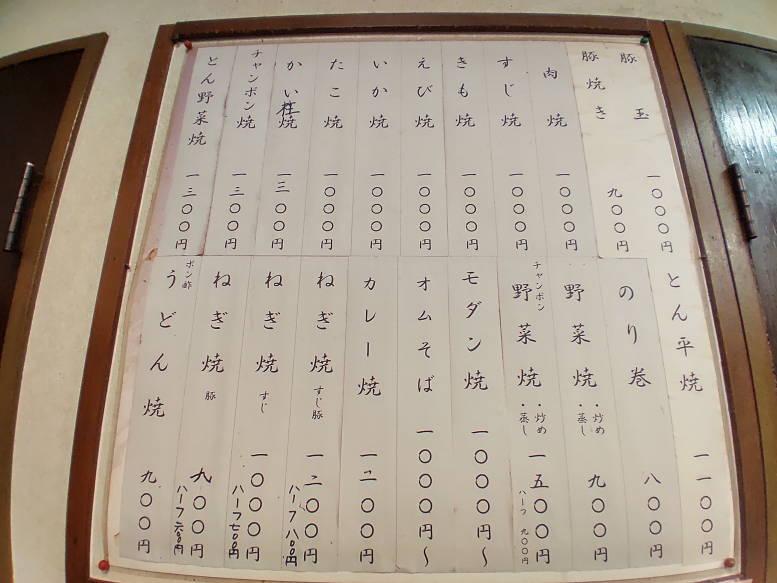 豚玉 一〇〇〇円
豚焼き 九〇〇円
肉焼 一〇〇〇円
すじ焼 一〇〇〇円
きも焼 一〇〇〇円
えび焼 一〇〇〇円
いか焼 一〇〇〇円
たこ焼 一〇〇〇円
かい柱焼 一三〇〇円
チャンポン焼 一三〇〇円
とん野菜焼 一三〇〇円
とん平焼 一一〇〇円
のり巻 八〇〇円
野菜焼 ・炒め ・蒸し 九〇〇円
チャンポン
野菜焼 ・炒め ・蒸し 一五〇〇円
ハーフ 九〇〇円
モダン焼 一〇〇〇円〜
オムそば 一〇〇〇円〜
カレー焼 一二〇〇円
ねぎ焼 すじ豚 一二〇〇円
ハーフ 八〇〇円
ねぎ焼 すじ 一〇〇〇円
ハーフ 七〇〇円
ねぎ焼 豚 九〇〇円
ハーフ 六〇〇円
ポン酢
うどん焼 九〇〇円